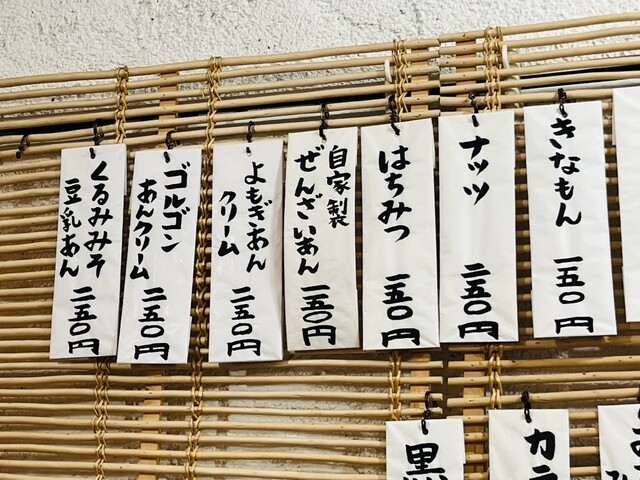 きなもん
一五〇円
ナッツ
二五〇円
はちみつ
一五〇円
自家製
ぜんざいあん
一五〇円
よもぎあん
クリーム
二五〇円
ゴルゴン
あんクリーム
二五〇円
くるみみそ
豆乳あん
二五〇円
カ
黒